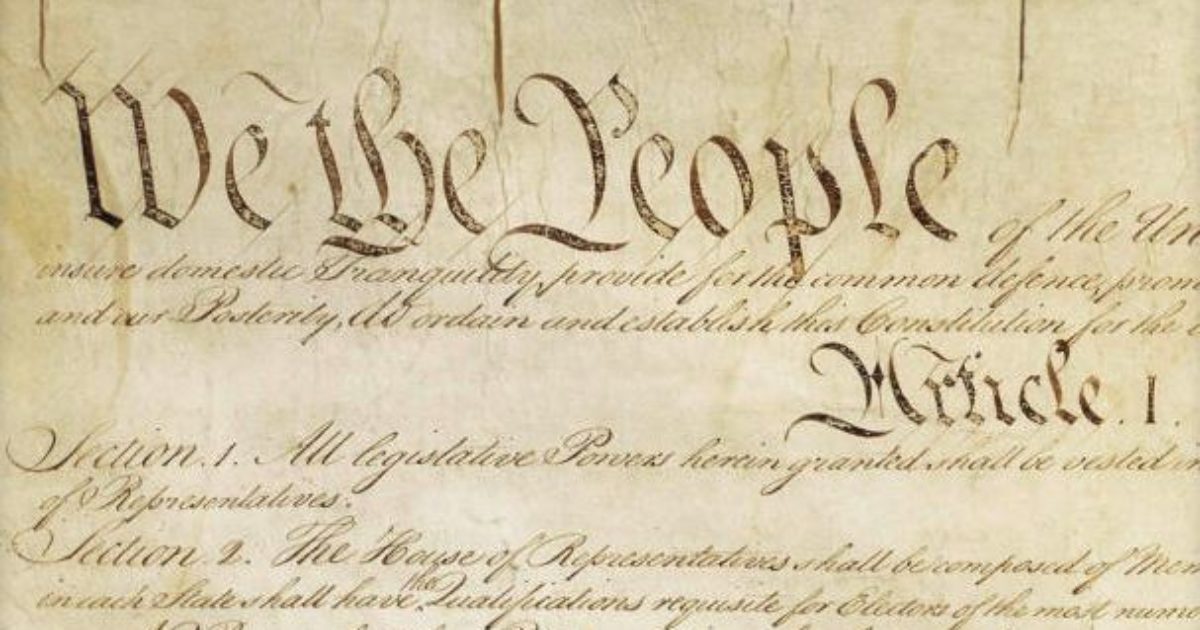 We the People of the Un
insure domestic Tranquility, provide for the common defence, prom
and our Posterity, do ordain and establish this Constitution for the
Article. I.
Section. 1. All legislative Powers herein granted shall be vested in
of Representatives.
Section. 2. The House of Representatives shall be composed of Mem
in each State shall have the Qualifications requisite for Electors of the most nume